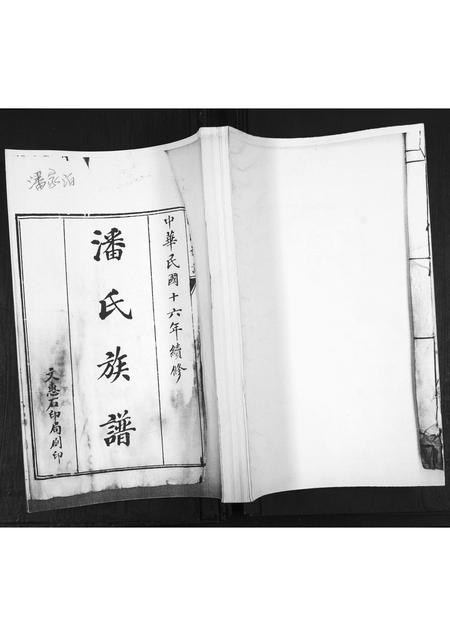 中華民國十六年續修
潘氏族譜
文惠石印局刷印
潘家泊